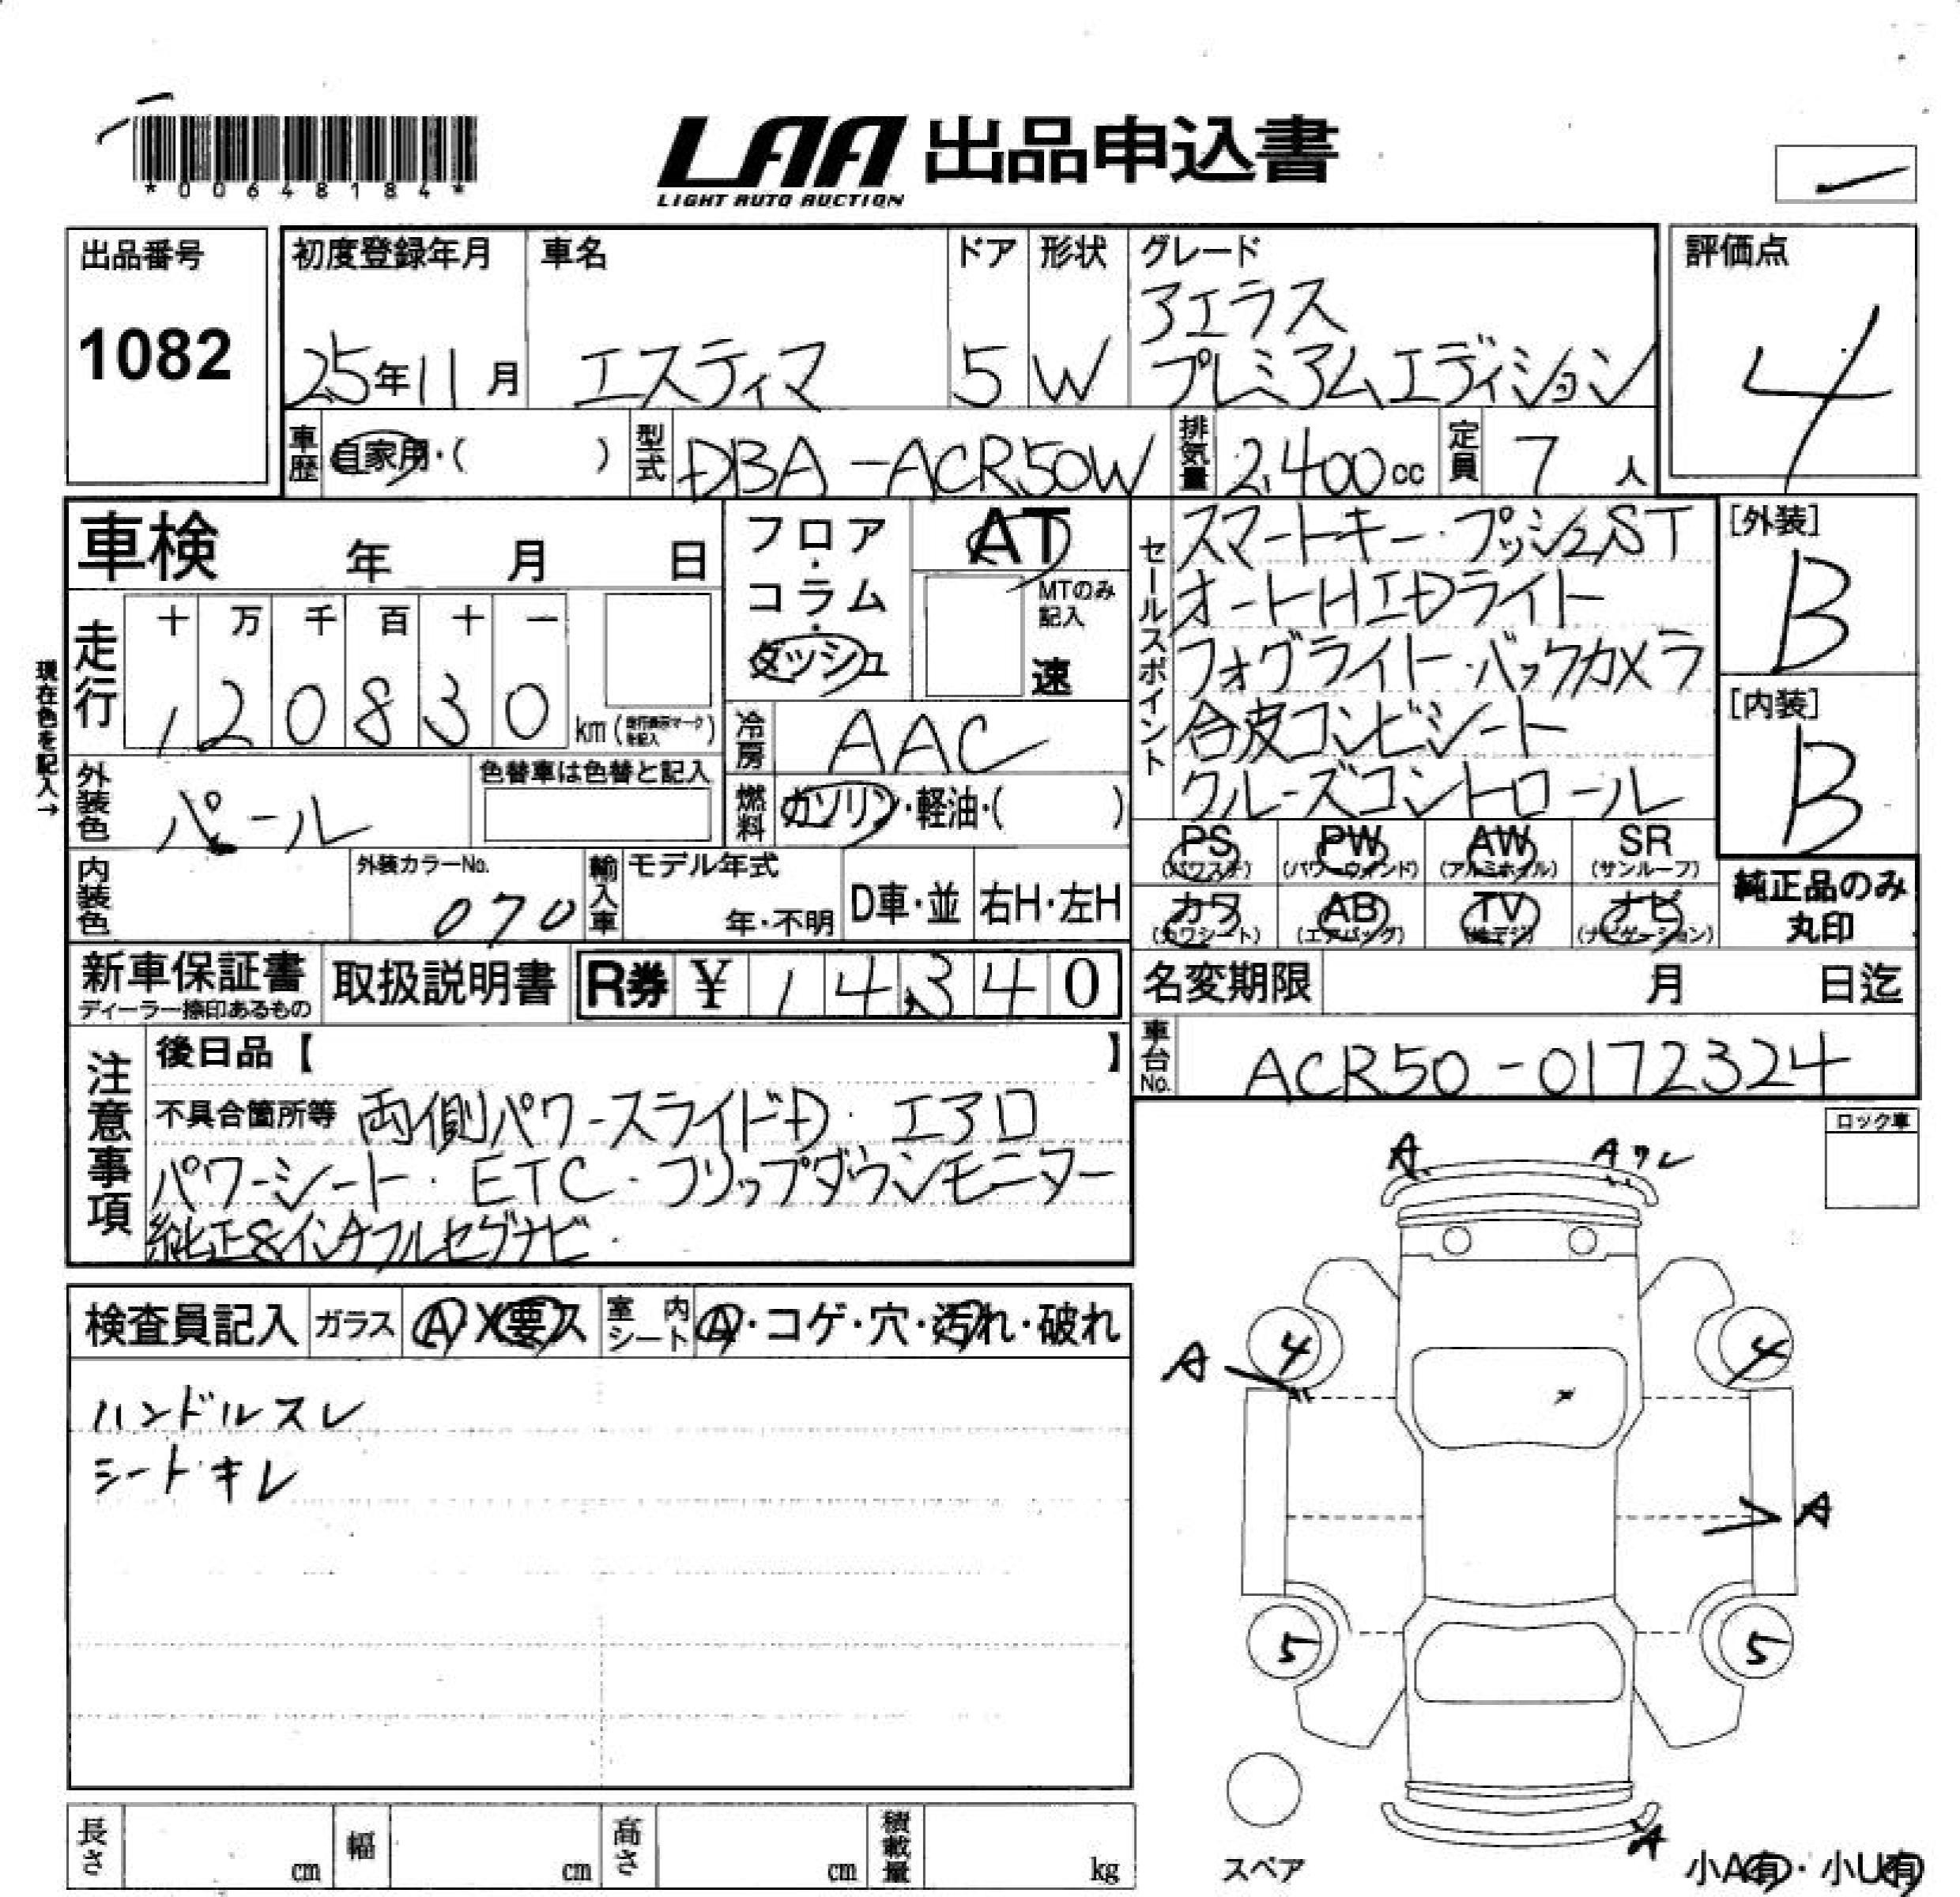 *00648184*
LAA 出品申込書
LIGHT AUTO AUCTION
出品番号
1082
初度登録年月
25年11月
車名
エスティマ
ドア
5
形状
W
グレード
アエラス
プレミアムエディション
評価点
4
車歴
自家用・( )
型式
DBA-ACR50W
排気量
2,400cc
定員
7人
車検 年 月 日
フロア・コラム・ダッシュ
AT
MTのみ記入
速
セールスポイント
スマートキー・プッシュST
オートHIDライト
フォグライト・バックカメラ
合皮コンビシート
クルーズコントロール
[外装]
B
[内装]
B
現在色を記入→
走行
十 万 千 百 十 一
120830
km(走行表示マークを記入)
冷房
AAC
外装色
パール
色替車は色替と記入
燃料
ガソリン・軽油・( )
PS (パワステ)
PW (パワーウィンド)
AW (アルミホイル)
SR (サンルーフ)
カワ (カワシート)
AB (エアバッグ)
TV (地デジ)
ナビ (ナビゲーション)
純正品のみ丸印
内装色
外装カラーNo.
070
輸入車
モデル年式
年・不明
D車・並
右H・左H
新車保証書
ディーラー捺印あるもの
取扱説明書
R券 ¥14,340
名変期限 月 日迄
車台No.
ACR50-0172324
注意事項
後日品【 】
不具合箇所等 両側パワースライドD・エアロ
パワーシート・ETC・フリップダウンモニター
純正8インチフルセグナビ
ロック車
A
Aワレ
検査員記入
ガラス
A X 要ス
室内シート
A・コゲ・穴・汚れ・破れ
ハンドルスレ
シートキレ
4
4
A
A
5
5
A
スペア
小A有・小U有
長さ cm
幅 cm
高さ cm
積載量 kg